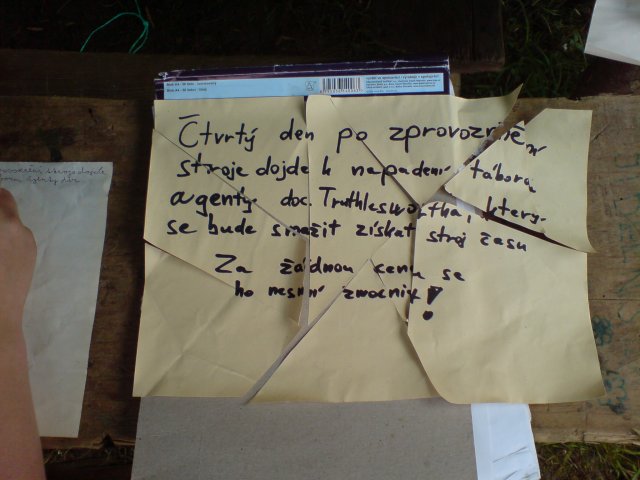 Čtvrtý den po zprovoznění
stroje dojde k napadení tábora
agenty. doc. Truthleswortha, který
se bude snažit získat stroj času
Za žádnou cenu se
ho nesmí zmocnit!